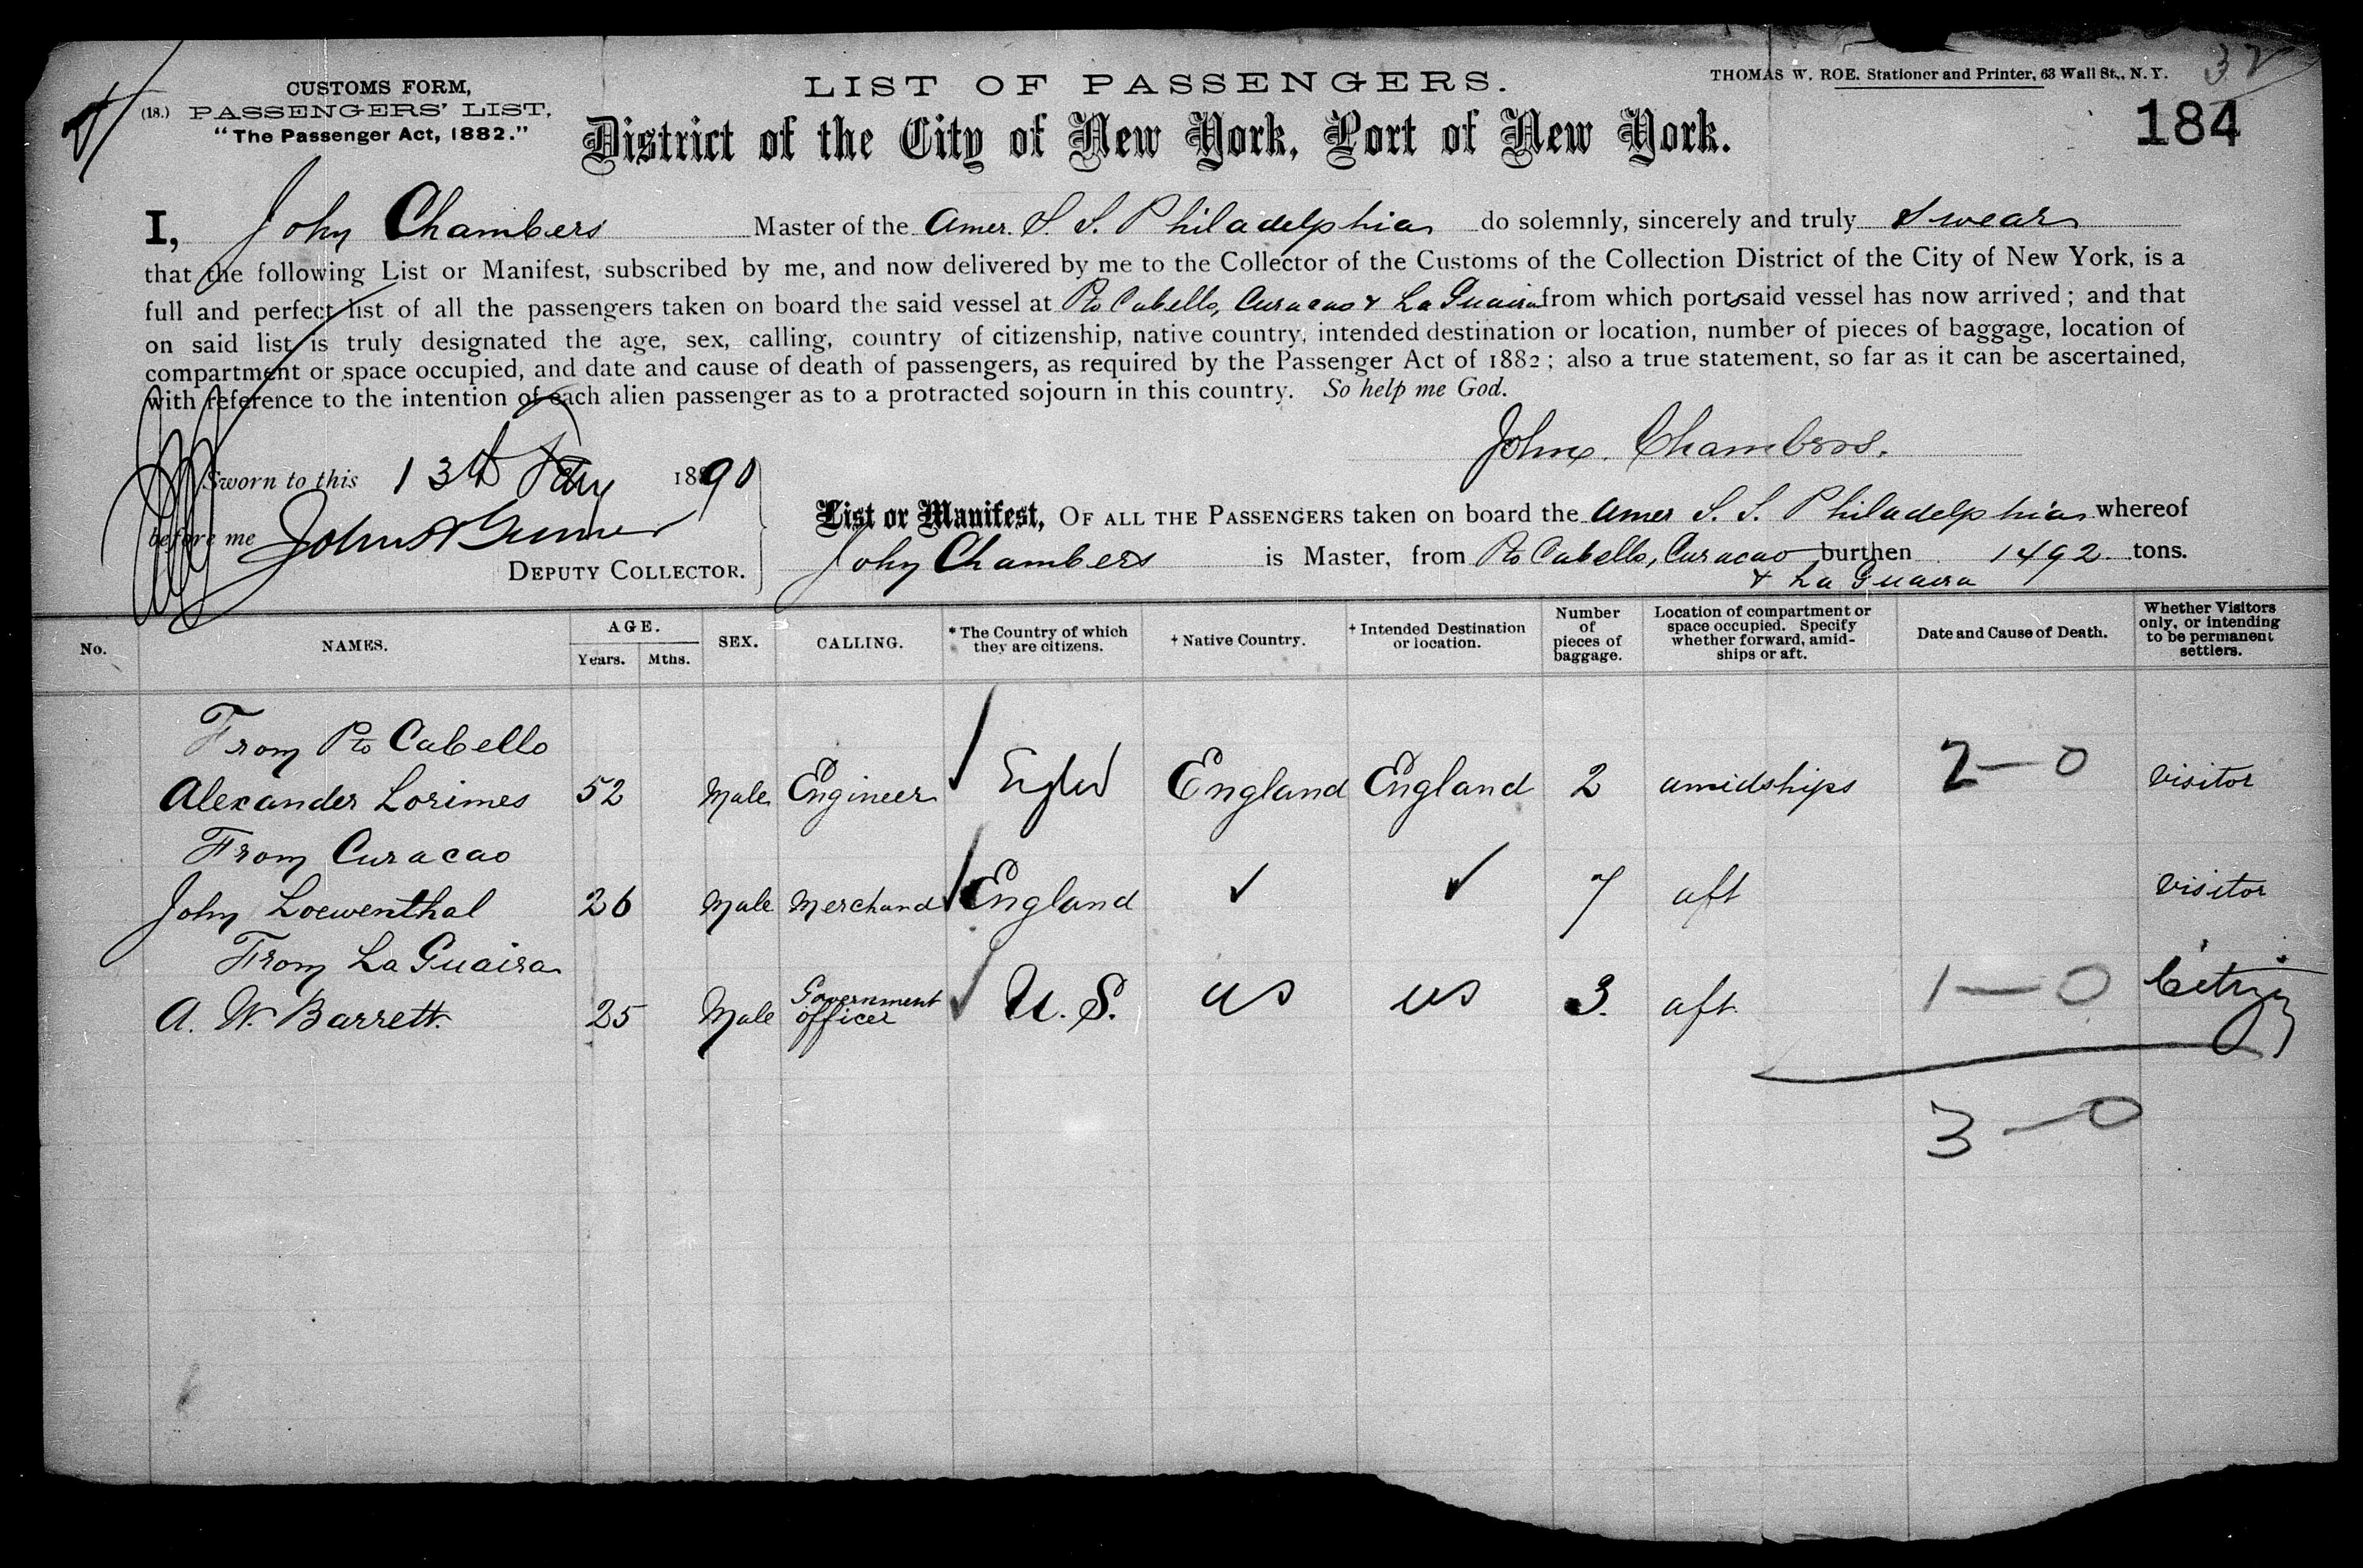 CUSTOMS FORM,
(18.) PASSENGERS' LIST,
"The Passenger Act, 1882."
LIST OF PASSENGERS.
THOMAS W. ROE. Stationer and Printer, 63 Wall St., N. Y.
32
184
District of the City of New York, Port of New York.
I, John Chambers Master of the Amer. S. S. Philadelphia do solemnly, sincerely and truly swear
that the following List or Manifest, subscribed by me, and now delivered by me to the Collector of the Customs of the Collection District of the City of New York, is a
full and perfect list of all the passengers taken on board the said vessel at Pto Cabello, Curacao & La Guaira from which ports said vessel has now arrived; and that
on said list is truly designated the age, sex, calling, country of citizenship, native country, intended destination or location, number of pieces of baggage, location of
compartment or space occupied, and date and cause of death of passengers, as required by the Passenger Act of 1882; also a true statement, so far as it can be ascertained,
with reference to the intention of each alien passenger as to a protracted sojourn in this country. So help me God.
John Chambers.
Sworn to this 13th 1890
before me John
DEPUTY COLLECTOR.
List or Manifest, OF ALL THE PASSENGERS taken on board the Amer S. S. Philadelphia whereof
John Chambers is Master, from Pto Cabello, Curacao burthen 1492 tons.
& La Guaira
No. NAMES. AGE. Years. Mths. SEX. CALLING. * The Country of which they are citizens. † Native Country. † Intended Destination or location. Number of pieces of baggage. Location of compartment or space occupied. Specify whether forward, amidships or aft. Date and Cause of Death. Whether Visitors only, or intending to be permanent settlers.
From Pto Cabello
Alexander Lorimes 52 Male Engineer Engld England England 2 amidships 2-0 visitor
From Curacao
John Loewenthal 26 Male Merchand ✓ England ✓ ✓ 7 aft visitor
From La Guaira
A. W. Barrett. 25 Male Government officer ✓ U. S. US US 3. aft. 1-0 Citizen
3-0